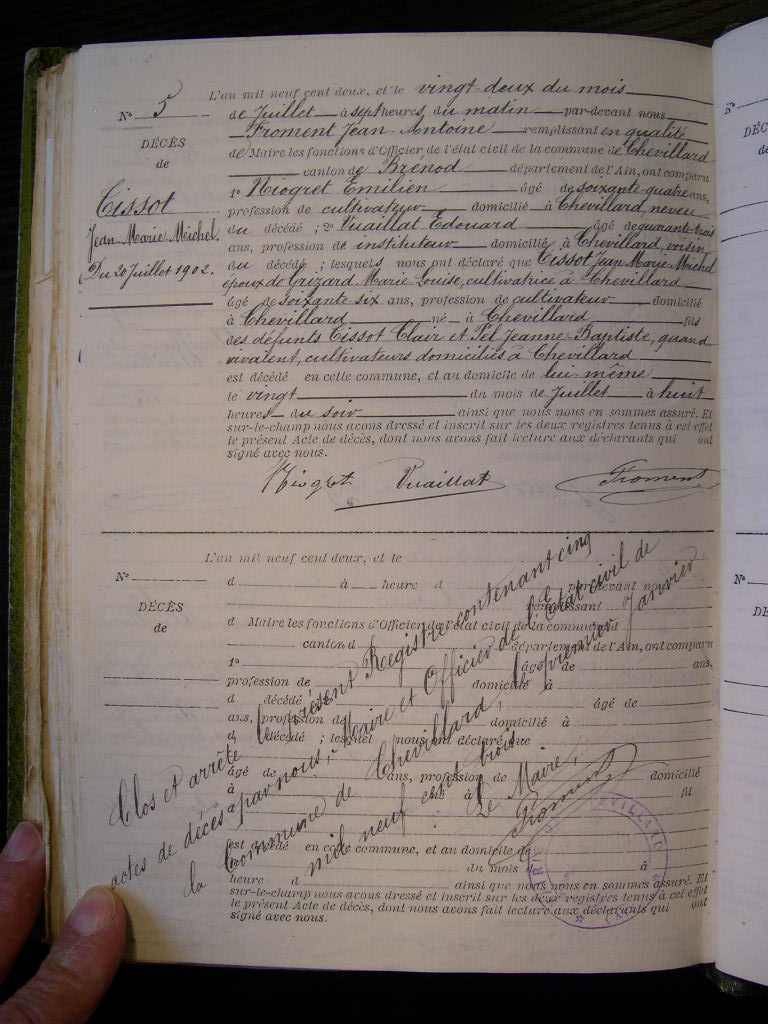 L'an mil neuf cent deux, et le vingt-deux du mois
N° 5
de Juillet à sept heures du matin par-devant nous
Froment Jean-Antoine remplissant en qualité
DÉCÈS
de
de Maire les fonctions d'Officier de l'état civil de la commune de Chevillard
canton de Brénod département de l'Ain, ont comparu
1° Niogret Emilien âgé de soixante quatre ans,
Tissot
Jean-Marie-Michel.
Du 20 Juillet 1902.
profession de cultivateur domicilié à Chevillard, neveu
du décédé ; 2° Vuaillat Edouard âgé de quarante-trois
ans, profession de instituteur domicilié à Chevillard, voisin
du décédé ; lesquels nous ont déclaré que Tissot Jean-Marie-Michel
époux de Grizard Marie-Louise, cultivatrice à Chevillard
âgé de soixante-six ans, profession de cultivateur domicilié
à Chevillard né à Chevillard fils
des défunts Tissot Clair et Pel Jeanne-Baptiste, quand
vivaient, cultivateurs domiciliés à Chevillard
est décédé en cette commune, et au domicile de lui-même
le vingt du mois de Juillet à huit
heures du soir ainsi que nous nous en sommes assuré. Et
sur-le-champ nous avons dressé et inscrit sur les deux registres tenus à cet effet
le présent Acte de décès, dont nous avons fait lecture aux déclarants qui ont
signé avec nous.
Niogret Vuaillat Froment
L'an mil neuf cent deux, et le
N°
d à heure d par-devant nous
remplissant
DÉCÈS
de
d Maire les fonctions d'Officier de l'état civil de la commune d
canton d département de l'Ain, ont comparu
1° âgé de ans,
profession de domicilié à
d décédé âgé de
ans, profession de domicilié à
d décédé ; lesquel nous ont déclaré que
âgé de ans, profession de domicilié
à né à fil
est décédé en cette commune, et au domicile de
du mois à
heure d ainsi que nous nous en sommes assuré. Et
sur-le-champ nous avons dressé et inscrit sur les deux registres tenus à cet effet
le présent Acte de décès, dont nous avons fait lecture aux déclarants qui ont
signé avec nous.
Clos et arrêté le présent Registre contenant cinq
actes de décès par nous, Maire et Officier de l'Etat civil de
la Commune de Chevillard, le premier Janvier
mil neuf cent trois
Le Maire,
Froment